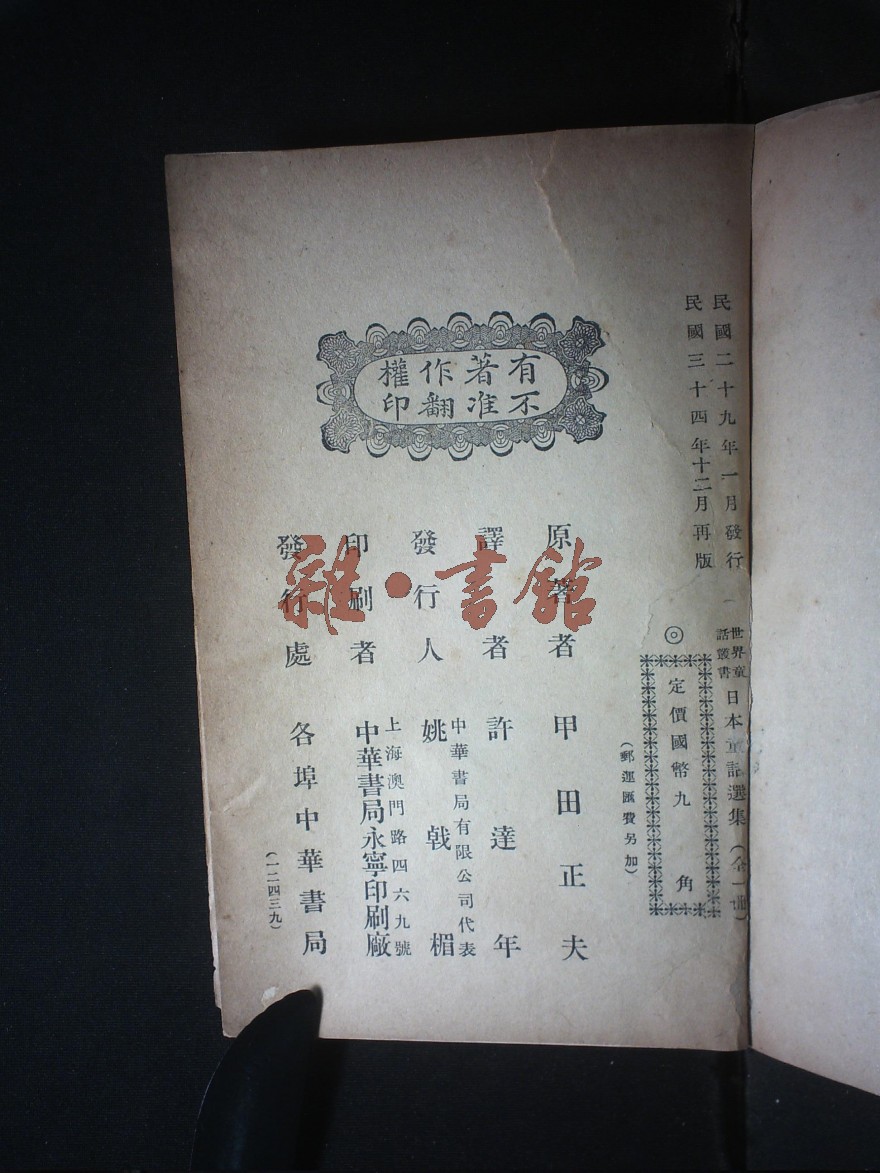 民國二十九年一月發行
民國三十四年十二月再版
世界童
話叢書
日本童話選集(全一冊)
◎
定價國幣九角
(郵運匯費另加)
有著作權
不准翻印
原著者 甲田正夫
譯者 許達年
中華書局有限公司代表
發行人 姚戟楣
上海澳門路四六九號
印刷者 中華書局永寧印刷廠
發行處 各埠中華書局
(一二四三九)
雜·書館